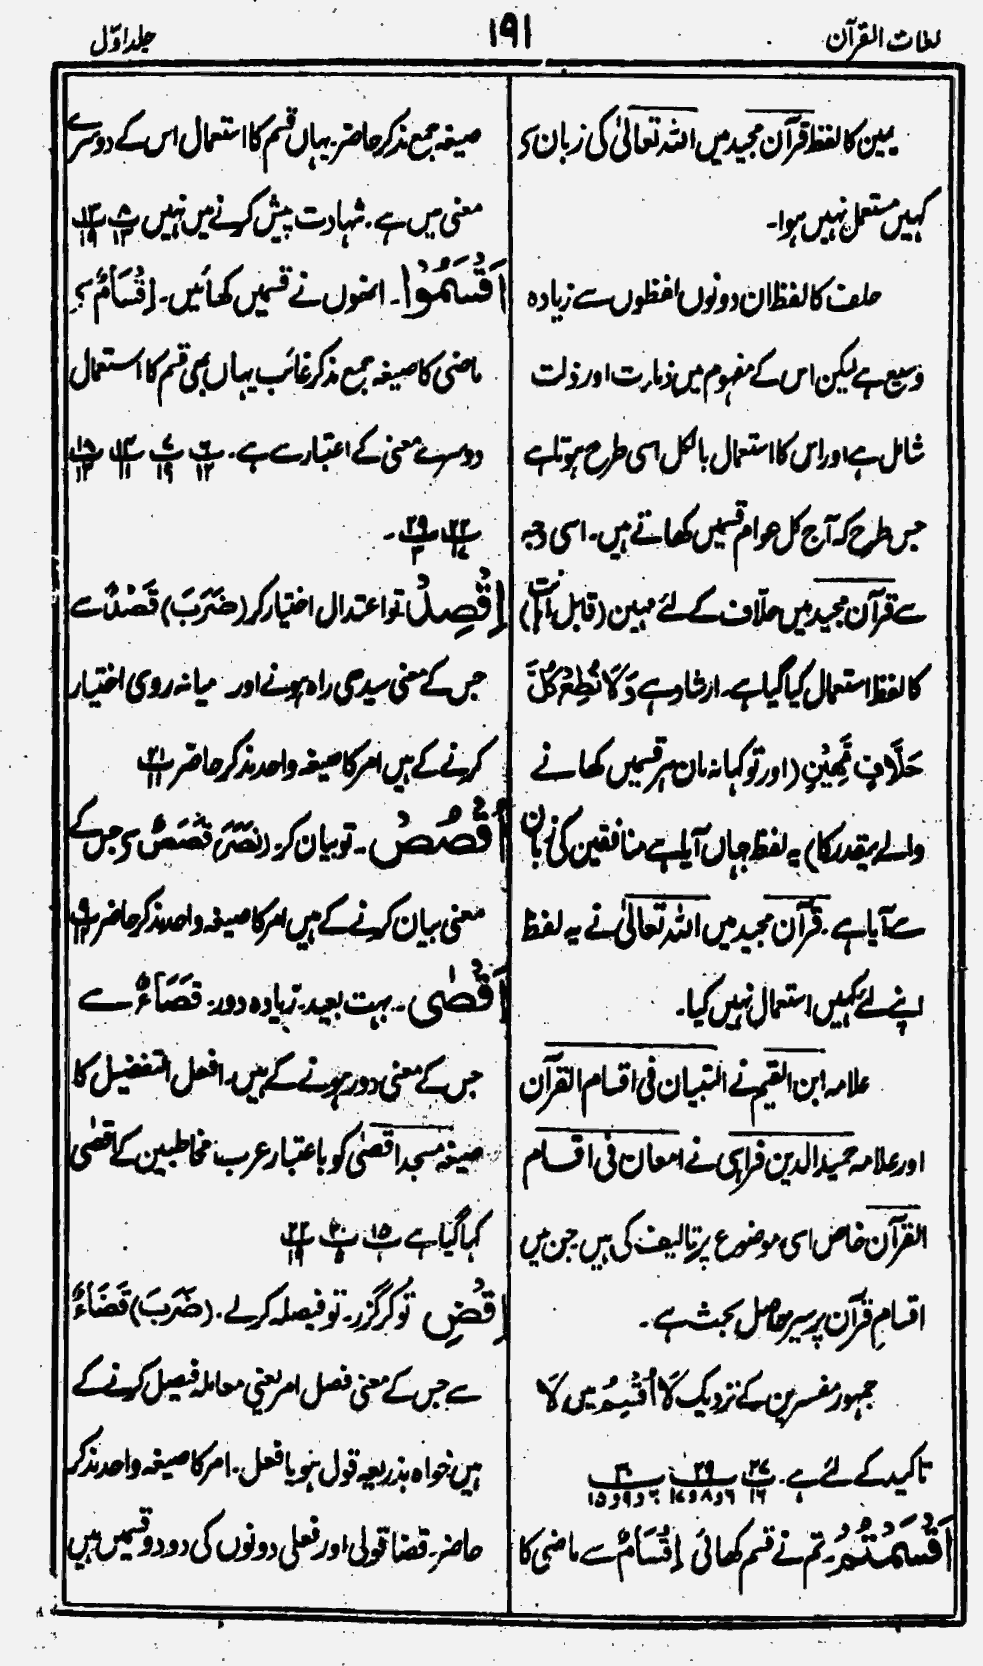 لغات القرآن
۱۹۱
جلد اوّل
یمین کا لفظ قرآن مجید میں اللہ تعالیٰ کی زبان سے
کہیں مستعمل نہیں ہوا۔
حلف کا لفظ ان دونوں لفظوں سے زیادہ
وسیع ہے لیکن اس کے مفہوم میں دنارت اور ذلت
شامل ہے اور اس کا استعمال بالکل اسی طرح ہوتا ہے
جس طرح کہ آج کل عوام قسمیں کھاتے ہیں۔ اسی وجہ
سے قرآن مجید میں حلّاف کے لئے مہین (قابل اہانت)
کا لفظ استعمال کیا گیا ہے۔ ارشاد ہے وَلَا تُطِعْ كُلَّ
حَلَّافٍ مَّهِيْنٍ (اور تو کہا نہ مان ہر قسمیں کھانے
والے بیقدر کا) یہ لفظ جہاں آیا ہے منافقین کی زبان
سے آیا ہے۔ قرآن مجید میں اللہ تعالیٰ نے یہ لفظ
اپنے لئے کہیں استعمال نہیں کیا۔
علامہ ابن القیم نے التبیان فی اقسام القرآن
اور علامہ حمید الدین فراہی نے امعان فی اقسام
القرآن خاص اسی موضوع پر تالیف کی ہیں جن میں
اقسامِ قرآن پر سیر حاصل بحث ہے۔
جمہور مفسرین کے نزدیک لَا اُقْسِمُ میں لَا
تاکید کے لئے ہے۔ ۲۷/۱۶ ۲۹/۶و۸و۱۷ ۳۰/۶و۹و۱۵
اَقْسَمْتُمْ۔ تم نے قسم کھائی اِقْسَامٌ سے ماضی کا
صیغہ جمع مذکر حاضر۔ یہاں قسم کا استعمال اس کے دوسرے
معنی میں ہے۔ شہادت پیش کرنے میں نہیں ۸/۱۲ ۱۳/۱۹
اَقْسَمُوْا۔ انھوں نے قسمیں کھائیں۔ اِقْسَامٌ سے
ماضی کا صیغہ جمع مذکر غائب یہاں بھی قسم کا استعمال
دوسرے معنی کے اعتبار سے ہے۔ ۶/۱۲ ۷/۱۹ ۱۴/۱۱ ۱۸/۱۳
۲۲/۱۷ ۲۹/۳۔
اِقْصِدْ تو اعتدال اختیار کر (ضَرَبَ) قَصْدٌ سے
جس کے معنی سیدھی راہ ہونے اور میانہ روی اختیار
کرنے کے ہیں امر کا صیغہ واحد مذکر حاضر ۲۱/۱۱
اُقْصُصْ۔ تو بیان کر۔ (نَصَرَ) قَصَصٌ سے جس کے
معنی بیان کرنے کے ہیں امر کا صیغہ واحد مذکر حاضر ۹/۱۲
اَقْصٰى۔ بہت بعید۔ زیادہ دور۔ قَصَاءٌ سے
جس کے معنی دور ہونے کے ہیں۔ افعل التفضیل کا
صیغہ مسجد اقصیٰ کو باعتبار عرب مخاطبین کے اقصٰی
کہا گیا ہے ۱۵/۱ ۲۰/۵ ۲۲/۱۹
اِقْضِ تو کر گزر۔ تو فیصلہ کر لے۔ (ضَرَبَ) قَضَاءٌ
سے جس کے معنی فصل امر یعنی معاملہ فیصل کرنے کے
ہیں خواہ بذریعہ قول ہو یا فعل۔ امر کا صیغہ واحد مذکر
حاضر۔ قضا قولی اور فعلی دونوں کی دو دو قسمیں ہیں